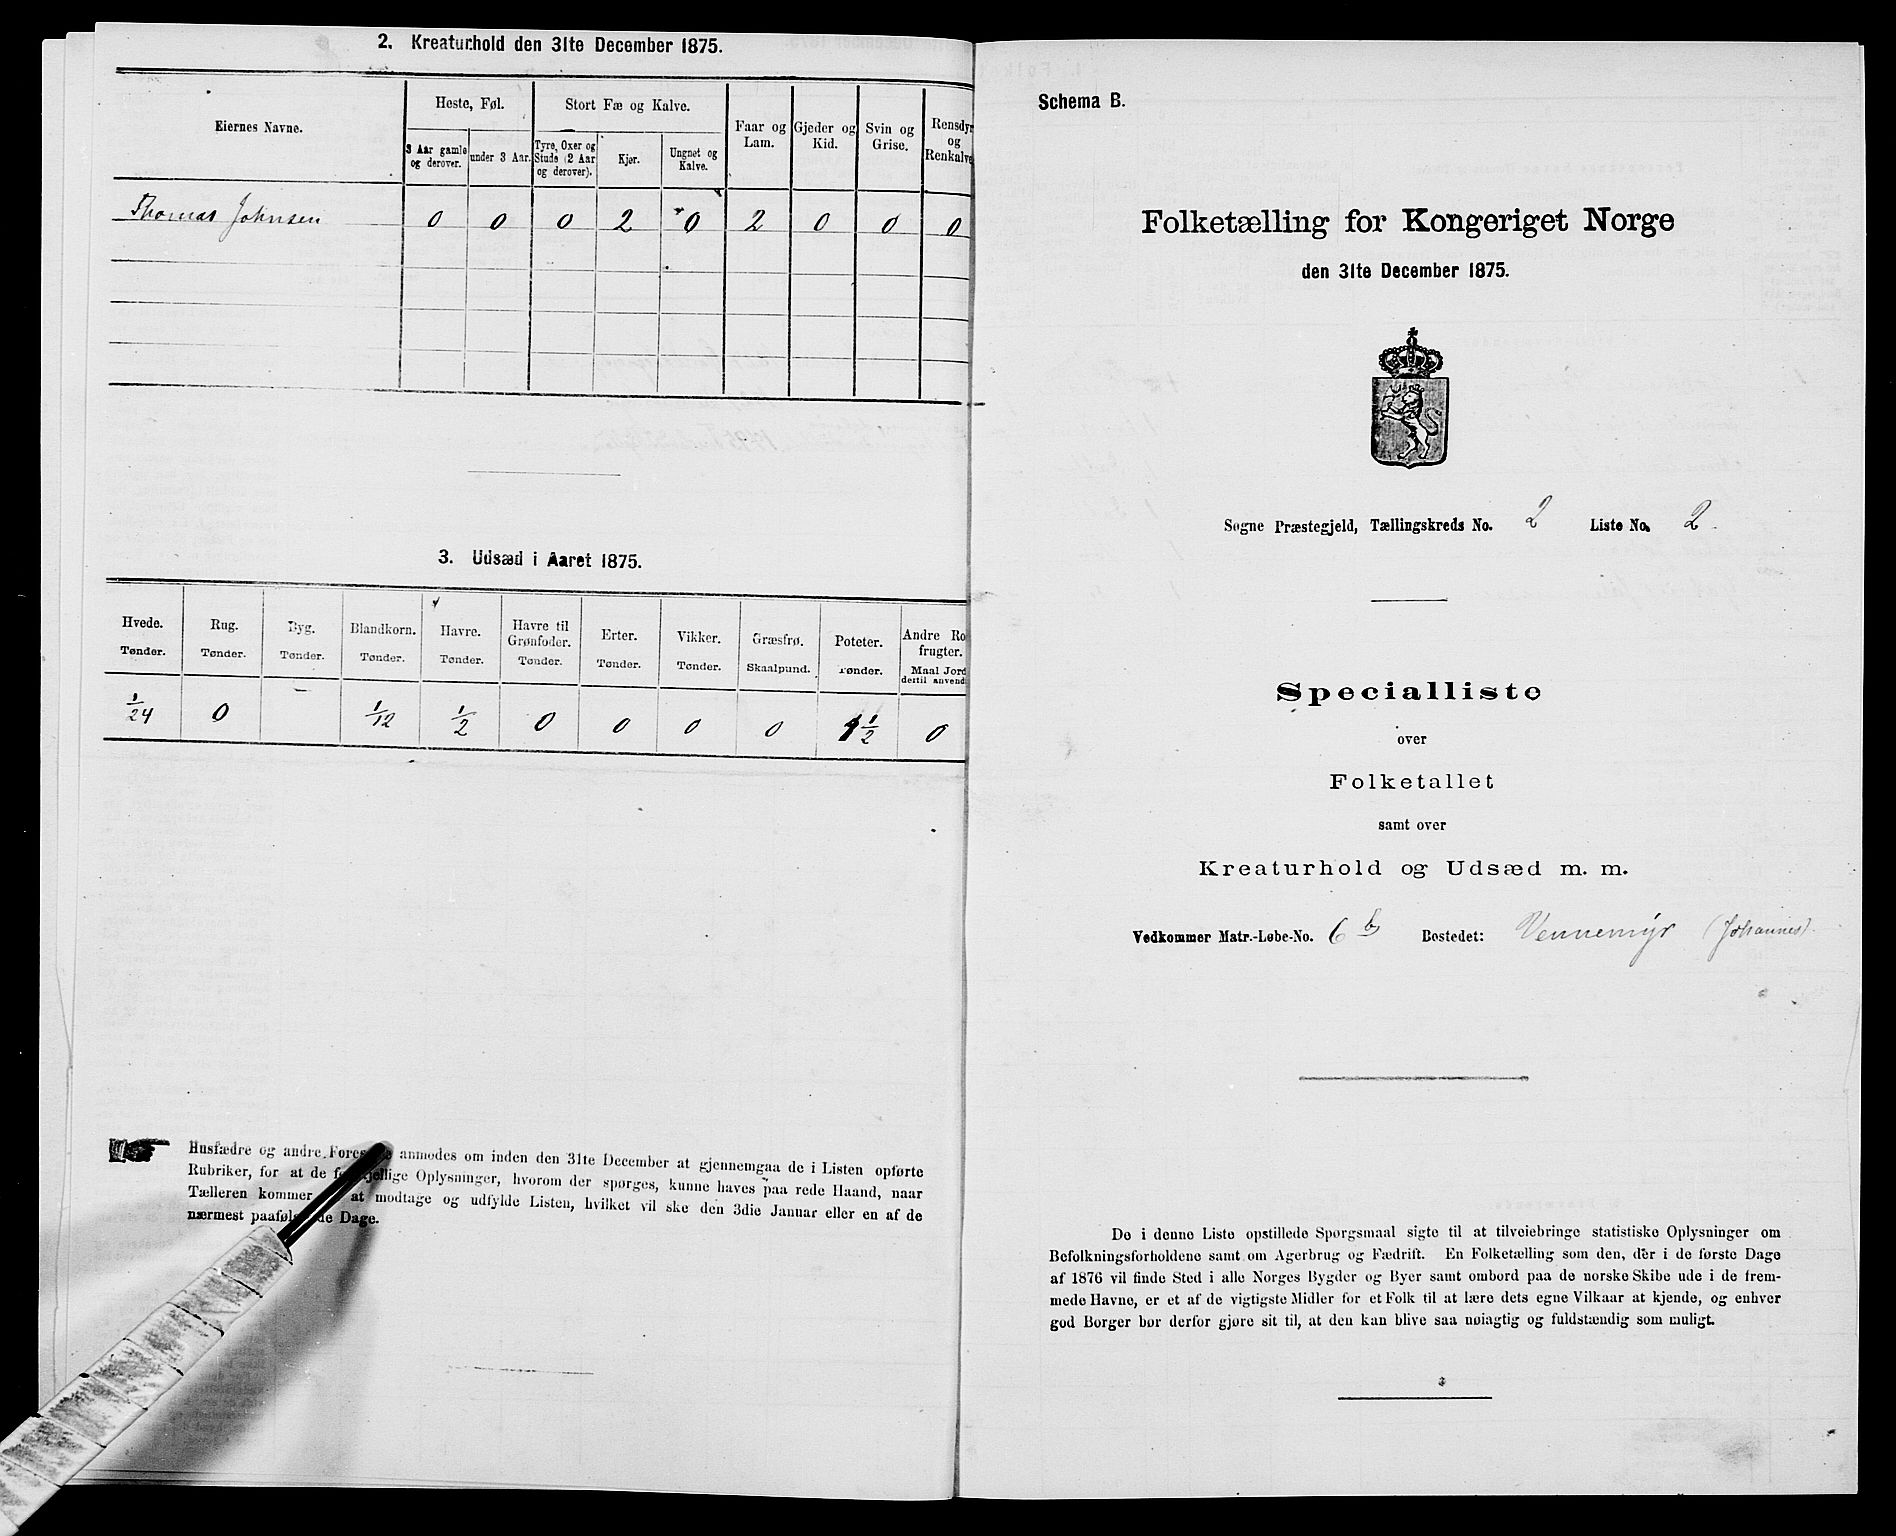 2. Kreaturhold den 31te December 1875.
Eiernes Navne.
Heste, Føl.
3 Aar gamle og derover.
under 3 Aar.
Stort Fæ og Kalve.
Tyre, Oxer og Stude (2 Aar og derover).
Kjør.
Ungnøt og Kalve.
Faar og Lam.
Gjeder og Kid.
Svin og Grise.
Rensdyr og Renkalve
Thomas Johnsen 0 0 0 2 0 2 0 0 0
3. Udsæd i Aaret 1875.
Hvede. Rug. Byg. Blandkorn. Havre. Havre til Grønfoder. Erter. Vikker. Græsfrø. Poteter. Andre Ro frugter.
Tønder. Tønder. Tønder. Tønder. Tønder. Tønder. Tønder. Tønder. Skaalpund. Tønder. Maal Jord dertil anvend
1/24 0 1/12 1/2 0 0 0 0 1 1/2 0
Husfædre og andre anmodes om inden den 31te December at gjennemgaa de i Listen opførte
Rubriker, for at de Oplysninger, hvorom der spørges, kunne haves paa rede Haand, naar
Tælleren kommer at modtage og udfylde Listen, hvilket vil ske den 3die Januar eller en af de
nærmest Dage.
Schema B.
Folketælling for Kongeriget Norge
den 31te December 1875.
Søgne Præstegjeld, Tællingskreds No. 2 Liste No. 2.
Specialliste
over
Folketallet
samt over
Kreaturhold og Udsæd m. m.
Vedkommer Matr.-Løbe-No. 6 b Bostedet: Vennemyr (Johannes).
De i denne Liste opstillede Spørgsmaal sigte til at tilveiebringe statistiske Oplysninger om
Befolkningsforholdene samt om Agerbrug og Fædrift. En Folketælling som den, der i de første Dage
af 1876 vil finde Sted i alle Norges Bygder og Byer samt ombord paa de norske Skibe ude i de frem-
mede Havne, er et af de vigtigste Midler for et Folk til at lære dets egne Vilkaar at kjende, og enhver
god Borger bør derfor gjøre sit til, at den kan blive saa nøiagtig og fuldstændig som muligt.